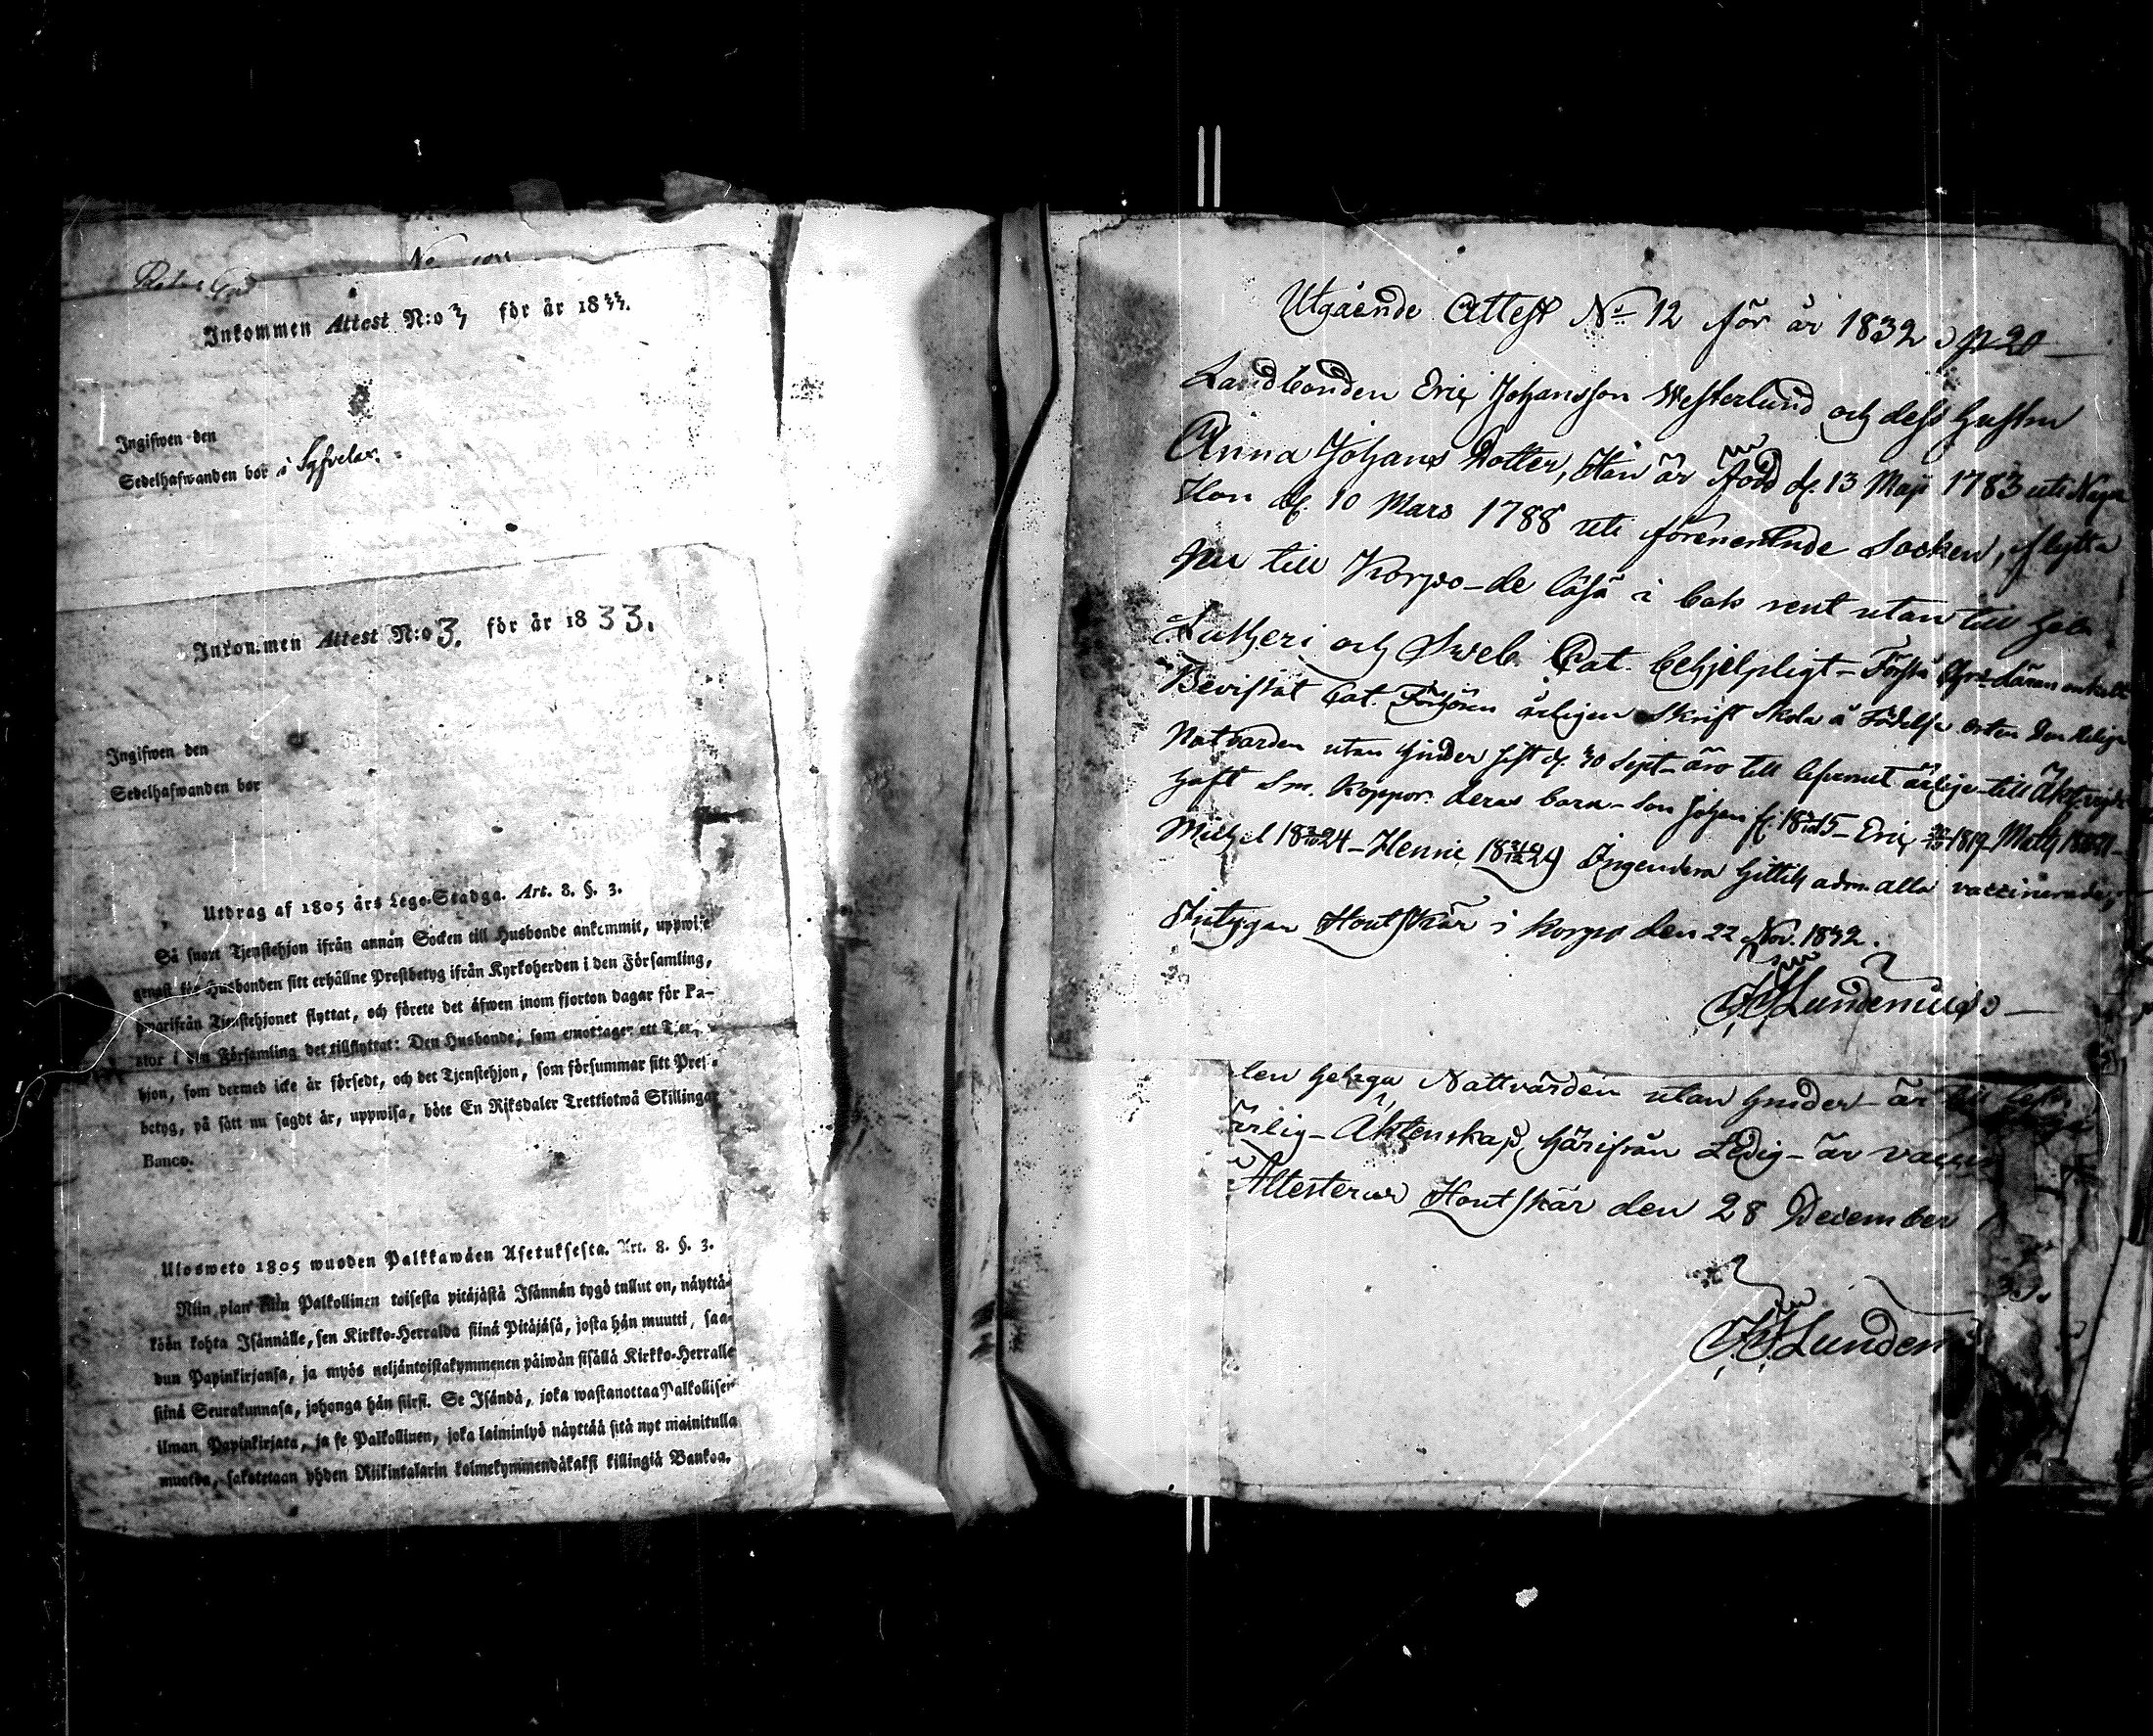 Inkommen Attest N:o 3 för år 1833.
Ingifwen den
Sedelhafwanden bor i
Inkommen Attest N:o 3. för år 1833.
Ingifwen den
Sedelhafwanden bor
Utdrag af 1805 års Lego-Stadga. Art. 8. §. 3.
Så snart Tjenstehjon ifrån annan Socken till Husbonde ankommit, uppwise
genast för Husbonden sitt erhållne Prestbetyg ifrån Kyrkoherden i den Församling,
hwarifrån Tjenstehjonet flyttat, och förete det äfwen inom fjorton dagar för Pa-
stor i den Församling det tillflyttat: Den Husbonde, som emottager ett Tjenste-
hjon, som dermed icke är försedt, och det Tjenstehjon, som försummar sitt Prest-
betyg, på sätt nu sagdt är, uppwisa, böte En Riksdaler Trettiotwå Skillingar
Banco.
Ulosweto 1805 wuoden Palkkawäen Asetuksesta. Art. 8. §. 3.
Niin pian kuin Palkollinen toisesta pitäjästä Isännän tygö tullut on, näyttä-
köön kohta Isännälle, sen Kirkko-Herralda siinä Pitäjäsä, josta hän muutti, saa-
dun Papinkirjansa, ja myös neljäntoistakymmenen päiwän sisällä Kirkko-Herralle
siinä Seurakunnasa, johonga hän siirsi. Se Isändä, joka wastanottaa Palkollisen
ilman Papinkirjata, ja se Palkollinen, joka laiminlyö näyttää sitä nyt mainitulla
muotoa, sakotetaan yhden Riikintalarin kolmekymmendäkaksi killingiä Bankoa.
Utgående Attest No 12 för år 1832
Landbonden Eric Johansson Westerlund och dess hustru
Anna Johans Dotter, Han är född d. 13 Maji 1783 uti
Hon d. 10 Mars 1788 uti förenemnde Socken, flytta
nu till Korpo - de läsa i bok rent utan till hela
Lutheri och Sweb. Cat. behjelpligt - Förstå Chr. Läran enkelt
Bevistat Cat. Förhören årligen Skrift Skola å Födelse orten Den Heliga
Nattvarden utan hinder sist d. 30 Sept - äro till lefvernet ärlige - till
haft Sm. Koppor. deras barn - Son Johan f. 1815 - Eric 1819 - Math
Michel 1824 - Henric 1829 Ingendera hittils adm. alla vaccinerade,
Intygar Houtskär i Korpo den 22 Nov. 1832.
Lundenius
den heliga Nattvarden utan hinder - är till
ärlig - Äktenskap härifrån Ledig - är
Attesterar Houtskär den 28 December
Lunden